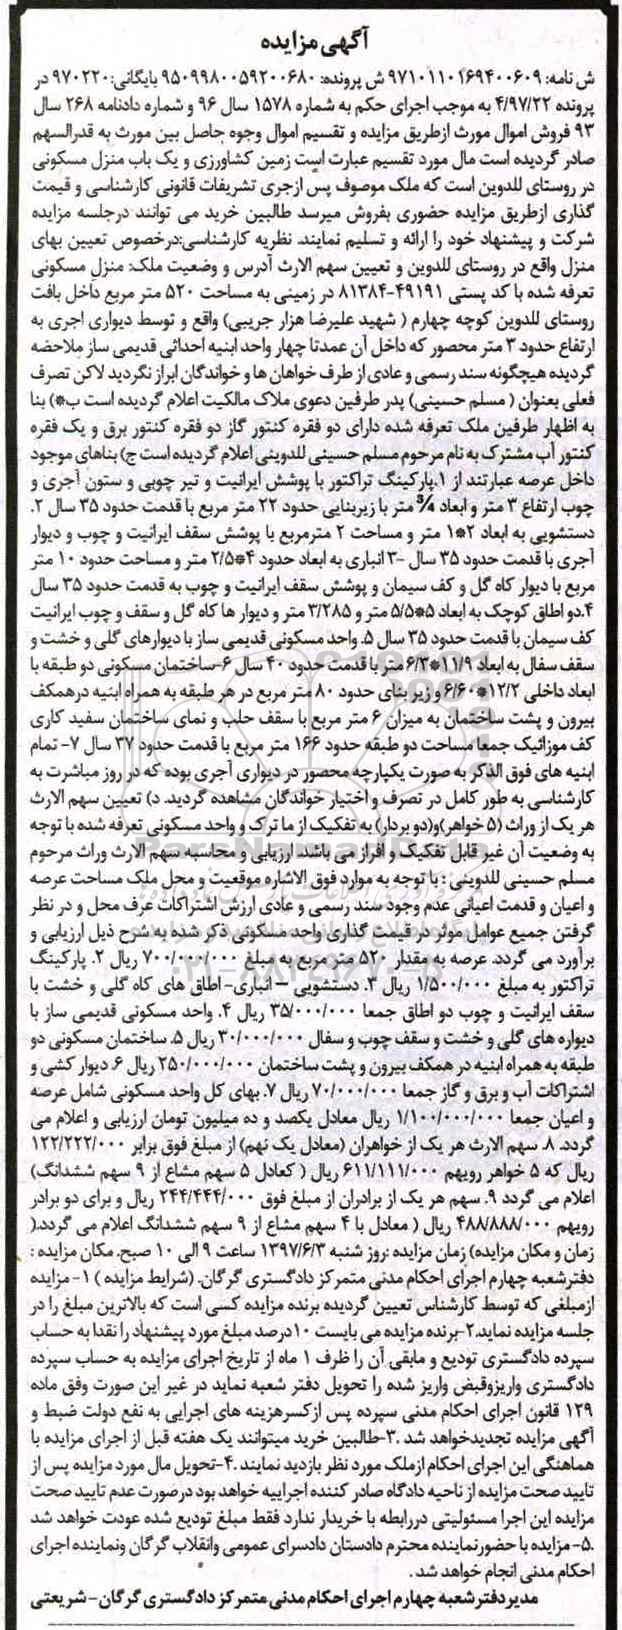 آگهی مزایده
ش نامه: ۹۷۱۰۱۱۰۱۶۹۴۰۰۶۰۹ ش پرونده: ۹۵۰۹۹۸۰۰۵۹۲۰۰۶۸۰ بایگانی: ۹۷۰۲۲۰ در
پرونده ۴/۹۷/۲۲ به موجب اجرای حکم به شماره ۱۵۷۸ سال ۹۶ و شماره دادنامه ۲۶۸ سال
۹۳ فروش اموال مورث ازطریق مزایده و تقسیم اموال وجوه حاصل بین مورث به قدرالسهم
صادر گردیده است مال مورد تقسیم عبارت است زمین کشاورزی و یک باب منزل مسکونی
در روستای للدوین است که ملک موصوف پس ازجری تشریفات قانونی کارشناسی و قیمت
گذاری ازطریق مزایده حضوری بفروش میرسد طالبین خرید می توانند درجلسه مزایده
شرکت و پیشنهاد خود را ارائه و تسلیم نمایند. نظریه کارشناسی:درخصوص تعیین بهای
منزل واقع در روستای للدوین و تعیین سهم الارث آدرس و وضعیت ملک: منزل مسکونی
تعرفه شده با کد پستی ۴۹۱۹۱-۸۱۳۸۴ در زمینی به مساحت ۵۲۰ متر مربع داخل بافت
روستای للدوین کوچه چهارم ( شهید علیرضا هزار جریبی) واقع و توسط دیواری اجری به
ارتفاع حدود ۳ متر محصور که داخل آن عمدتا چهار واحد ابنیه احداثی قدیمی ساز ملاحضه
گردیده هیچگونه سند رسمی و عادی از طرف خواهان ها و خواندگان ابراز نگردید لاکن تصرف
فعلی بعنوان ( مسلم حسینی) پدر طرفین دعوی ملاک مالکیت اعلام گردیده است ب*) بنا
به اظهار طرفین ملک تعرفه شده دارای دو فقره کنتور گاز دو فقره کنتور برق و یک فقره
کنتور آب مشترک به نام مرحوم مسلم حسینی للدوینی اعلام گردیده است ج) بناهای موجود
داخل عرصه عبارتند از ۱.پارکینگ تراکتور با پوشش ایرانیت و تیر چوبی و ستون آجری و
چوب ارتفاع ۳ متر و ابعاد ¾ متر با زیربنایی حدود ۲۲ متر مربع با قدمت حدود ۳۵ سال ۲.
دستشویی به ابعاد ۲*۱ متر و مساحت ۲ مترمربع با پوشش سقف ایرانیت و چوب و دیوار
آجری با قدمت حدود ۳۵ سال -۳انباری به ابعاد حدود ۴*۲/۵ متر و مساحت حدود ۱۰ متر
مربع با دیوار کاه گل و کف سیمان و پوشش سقف ایرانیت و چوب به قدمت حدود ۳۵ سال
۴.دو اطاق کوچک به ابعاد ۵*۵/۵ متر و ۳/۲۸۵ متر و دیوار ها کاه گل و سقف و چوب ایرانیت
کف سیمان با قدمت حدود ۳۵ سال ۵. واحد مسکونی قدیمی ساز با دیوارهای گلی و خشت و
سقف سفال به ابعاد ۱۱/۹*۶/۳ متر با قدمت حدود ۴۰ سال ۶-ساختمان مسکونی دو طبقه با
ابعاد داخلی ۱۲/۲*۶/۶۰ و زیر بنای حدود ۸۰ متر مربع در هر طبقه به همراه ابنیه درهمکف
بیرون و پشت ساختمان به میزان ۶ متر مربع با سقف حلب و نمای ساختمان سفید کاری
کف موزائیک جمعا مساحت دو طبقه حدود ۱۶۶ متر مربع با قدمت حدود ۳۷ سال ۷- تمام
ابنیه های فوق الذکر به صورت یکپارچه محصور در دیواری آجری بوده که در روز مباشرت به
کارشناسی به طور کامل در تصرف و اختیار خواندگان مشاهده گردید. د) تعیین سهم الارث
هر یک از وراث (۵ خواهر)و(دو برادر) به تفکیک از ما ترک و واحد مسکونی تعرفه شده با توجه
به وضعیت آن غیر قابل تفکیک و افراز می باشد. ارزیابی و محاسبه سهم الارث وراث مرحوم
مسلم حسینی للدوینی : با توجه به موارد فوق الاشاره موقعیت و محل ملک مساحت عرصه
و اعیان و قدمت اعیانی عدم وجود سند رسمی و عادی ارزش اشتراکات عرف محل و در نظر
گرفتن جمیع عوامل موثر در قیمت گذاری واحد مسکونی ذکر شده به شرح ذیل ارزیابی و
برآورد می گردد. عرصه به مقدار ۵۲۰ متر مربع به مبلغ ۷۰۰/۰۰۰/۰۰۰ ریال ۲. پارکینگ
تراکتور به مبلغ ۱/۵۰۰/۰۰۰ ریال ۳. دستشویی – انباری- اطاق های کاه گلی و خشت با
سقف ایرانیت و چوب دو اطاق جمعا ۳۵/۰۰۰/۰۰۰ ریال ۴. واحد مسکونی قدیمی ساز با
دیواره های گلی و خشت و سقف چوب و سفال ۳۰/۰۰۰/۰۰۰ ریال ۵. ساختمان مسکونی دو
طبقه به همراه ابنیه در همکف بیرون و پشت ساختمان ۲۵۰/۰۰۰/۰۰۰ ریال ۶. دیوار کشی و
اشتراکات آب و برق و گاز جمعا ۷۰/۰۰۰/۰۰۰ ریال ۷. بهای کل واحد مسکونی شامل عرصه
و اعیان جمعا ۱/۱۰۰/۰۰۰/۰۰۰ ریال معادل یکصد و ده میلیون تومان ارزیابی و اعلام می
گردد. ۸. سهم الارث هر یک از خواهران (معادل یک نهم) از مبلغ فوق برابر ۱۲۲/۲۲۲/۰۰۰
ریال که ۵ خواهر رویهم ۶۱۱/۱۱۱/۰۰۰ ریال ( کعادل ۵ سهم مشاع از ۹ سهم ششدانگ)
اعلام می گردد ۹. سهم هر یک از برادران از مبلغ فوق ۲۴۴/۴۴۴/۰۰۰ ریال و برای دو برادر
رویهم ۴۸۸/۸۸۸/۰۰۰ ریال ( معادل با ۴ سهم مشاع از ۹ سهم ششدانگ اعلام می گردد.(
زمان و مکان مزایده) زمان مزایده :روز شنبه ۱۳۹۷/۶/۳ ساعت ۹ الی ۱۰ صبح. مکان مزایده :
دفترشعبه چهارم اجرای احکام مدنی متمرکز دادگستری گرگان. (شرایط مزایده ) ۱- مزایده
ازمبلغی که توسط کارشناس تعیین گردیده برنده مزایده کسی است که بالاترین مبلغ را در
جلسه مزایده نماید.۲-برنده مزایده می بایست ۱۰درصد مبلغ مورد پیشنهاد را نقدا به حساب
سپرده دادگستری تودیع و مابقی آن را ظرف ۱ ماه از تاریخ اجرای مزایده به حساب سپرده
دادگستری واریزوقبض واریز شده را تحویل دفتر شعبه نماید در غیر این صورت وفق ماده
۱۲۹ قانون اجرای احکام مدنی سپرده پس ازکسرهزینه های اجرایی به نفع دولت ضبط و
آگهی مزایده تجدیدخواهد شد .۳-طالبین خرید میتوانند یک هفته قبل از اجرای مزایده با
هماهنگی این اجرای احکام ازملک مورد نظر بازدید نمایند .۴-تحویل مال مورد مزایده پس از
تایید صحت مزایده از ناحیه دادگاه صادر کننده اجراییه خواهد بود درصورت عدم تایید صحت
مزایده این اجرا مسئولیتی دررابطه با خریدار ندارد فقط مبلغ تودیع شده عودت خواهد شد
.۵- مزایده با حضورنماینده محترم دادستان دادسرای عمومی وانقلاب گرگان ونماینده اجرای
احکام مدنی انجام خواهد شد.
مدیر دفتر شعبه چهارم اجرای احکام مدنی متمرکز دادگستری گرگان- شریعتی